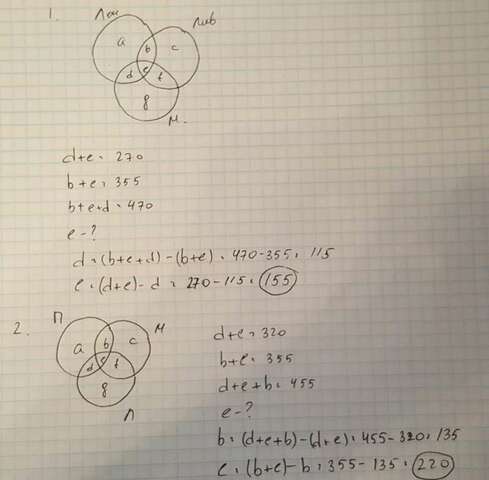 1.
Лен Лив
a b c
d e f
g
М.
d+e = 270
b+e = 355
b+e+d = 470
e - ?
d = (b+e+d) - (b+e) = 470 - 355 = 115
e = (d+e) - d = 270 - 115 = 155
2.
П М
a b c
d e f
g
Л
d+e = 320
b+e = 355
d+e+b = 455
e - ?
b = (d+e+b) - (d+e) = 455 - 320 = 135
e = (b+e) - b = 355 - 135 = 220